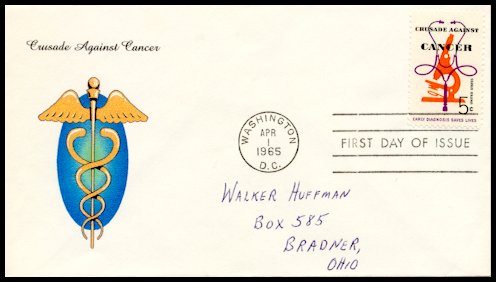 Crusade Against Cancer
CRUSADE AGAINST
CANCER
5c
EARLY DIAGNOSIS SAVES LIVES
WASHINGTON
APR
1
1965
D.C.
FIRST DAY OF ISSUE
WALKER HUFFMAN
BOX 585
BRADNER,
OHIO